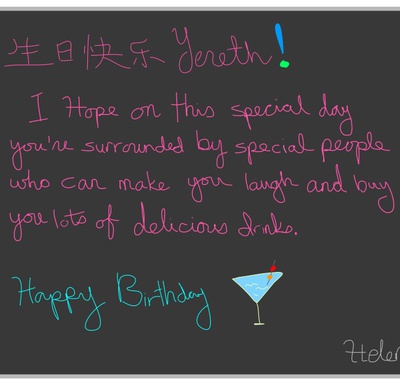 生日快乐 Yereth!
I Hope on this special day
you're surrounded by special people
who can make you laugh and buy
you lots of delicious drinks.
Happy Birthday
Helen